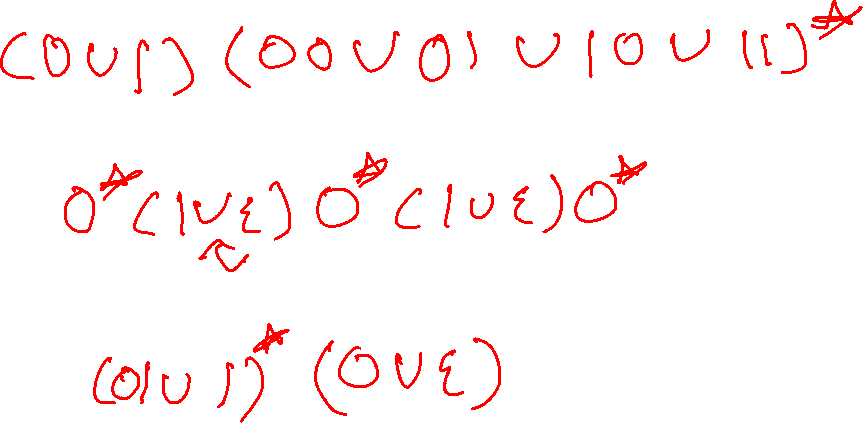 (0∪1)(00∪01∪10∪11)*
0*(1∪ε)0*(1∪ε)0*
(01∪1)*(0∪ε)